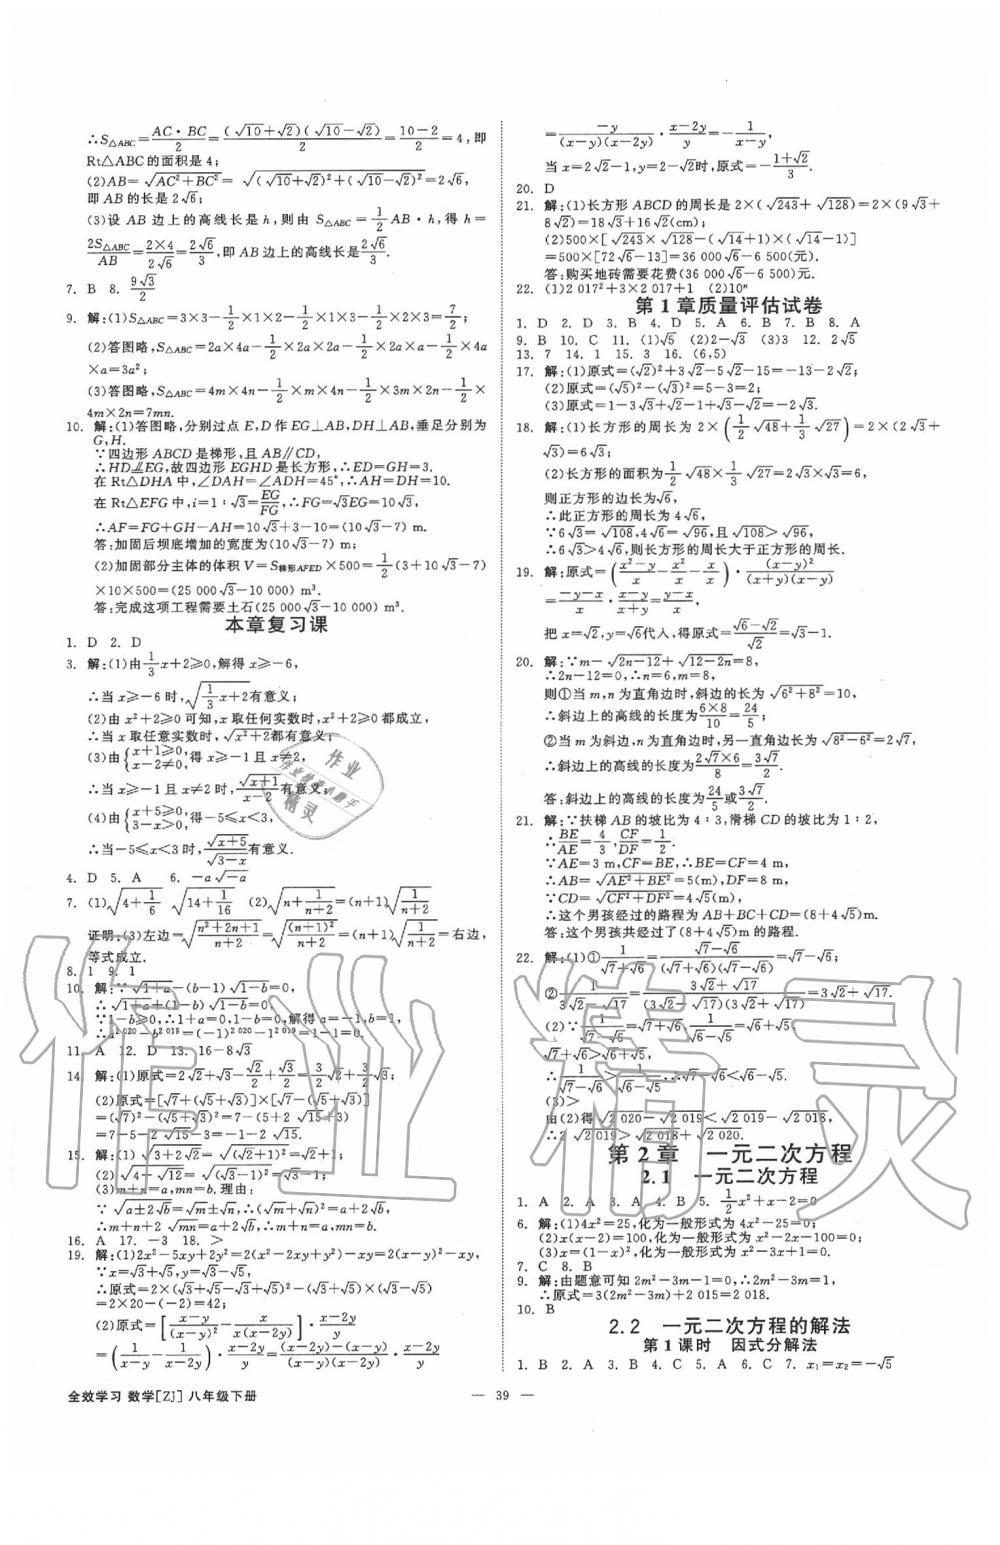 ∴S△ABC=AC·BC/2=(√10+√2)(√10-√2)/2=(10-2)/2=4,即
Rt△ABC的面积是4;
(2)AB=√(AC²+BC²)=√((√10+√2)²+(√10-√2)²)=2√6,
即AB的长是2√6;
(3)设AB边上的高线长是h,则由S△ABC=1/2AB·h,得h=
2S△ABC/AB=2×4/2√6=2√6/3,即AB边上的高线长是2√6/3.
7. B 8. 9√3/2
9. 解:(1)S△ABC=3×3-1/2×1×2-1/2×1×3-1/2×2×3=7/2;
(2)答图略,S△ABC=2a×4a-1/2×2a×a-1/2×2a×2a-1/2×4a
×a=3a²;
(3)答图略,S△ABC=4m×4n-1/2×m×4n-1/2×3m×2n-1/2×
4m×2n=7mn.
10. 解:(1)答图略,分别过点E,D作EG⊥AB,DH⊥AB,垂足分别为
G,H.
∵四边形ABCD是梯形,且AB∥CD,
∴HD⫽EG,故四边形EGHD是长方形,∴ED=GH=3.
在Rt△DHA中,∠DAH=∠ADH=45°,∴AH=DH=10.
在Rt△EFG中,i=1∶√3=EG/FG,∴FG=√3EG=10√3,
∴AF=FG+GH-AH=10√3+3-10=(10√3-7) m.
答:加固后坝底增加的宽度为(10√3-7) m;
(2)加固部分主体的体积V=S梯形AFED×500=1/2(3+10√3-7)
×10×500=(25 000√3-10 000) m³.
答:完成这项工程需要土石(25 000√3-10 000) m³.
本章复习课
1. D 2. D
3. 解:(1)由1/3x+2≥0,解得x≥-6,
∴当x≥-6时,√(1/3x+2)有意义;
(2)由x²+2≥0可知,x取任何实数时,x²+2≥0都成立,
∴当x取任意实数时,√(x²+2)都有意义;
(3)由{x+1≥0, x-2≠0,得x≥-1且x≠2,
∴当x≥-1且x≠2时,√(x+1)/(x-2)有意义;
(4)由{x+5≥0, 3-x>0,得-5≤x<3,
∴当-5≤x<3时,√(x+5)/√(3-x)有意义.
4. D 5. A 6. -a√-a
7. (1)√(4+1/6) √(14+1/16) (2)√(n+1/(n+2))=(n+1)√(1/(n+2))
证明:(3)左边=√((n²+2n+1)/(n+2))=√((n+1)²/(n+2))=(n+1)√(1/(n+2))=右边,
等式成立.
8. 1 9. 1
10. 解:∵√(1+a)-(b-1)√(1-b)=0,
∴√(1+a)+(1-b)√(1-b)=0.
∵1-b≥0,∴1+a=0,1-b=0,解得a=-1,b=1,
∴a²⁰²⁰-b²⁰¹⁹=(-1)²⁰²⁰-1²⁰¹⁹=1-1=0.
11. A 12. D 13. 16-8√3
14. 解:(1)原式=2√2+√3-√2/2+√3/3=3√2/2+4/3√3;
(2)原式=[√7+(√5+√3)]×[√7-(√5+√3)]
=(√7)²-(√5+√3)²=7-(5+2√15+3)
=7-5-2√15-3=-1-2√15.
15. 解:(1)√(3+2√2)=√((√2+1)²)=√2+1;
(2)√(4-√12)=√((√3-1)²)=√3-1;
(3)m+n=a,mn=b.理由:
∵√(a±2√b)=√m±√n,∴(√m+√n)²=a+2√b,
∴m+n+2√mn=a+2√b,∴m+n=a,mn=b.
16. A 17. -3 18. >
19. 解:(1)2x²-5xy+2y²=2(x²-2xy+y²)-xy=2(x-y)²-xy,
∵x=√3+√5,y=√3-√5,
∴原式=2×(√3+√5-√3+√5)²-(√3+√5)×(√3-√5)
=2×20-(-2)=42;
(2)原式=[(x-y)/(x-y)²-x/x(x-2y)]·(x-2y)/y
=(1/(x-y)-1/(x-2y))·(x-2y)/y=((x-2y)-(x-y))/((x-y)(x-2y))·(x-2y)/y
=-y/((x-y)(x-2y))·(x-2y)/y=-1/(x-y),
当x=2√2-1,y=2-√2时,原式=-(1+√2)/3.
20. D
21. 解:(1)长方形ABCD的周长是2×(√243+√128)=2×(9√3+
8√2)=18√3+16√2(cm);
(2)500×[√243×√128-(√14+1)×(√14-1)]
=500×[72√6-13]=36 000√6-6 500(元).
答:购买地砖需要花费(36 000√6-6 500)元.
22. (1)2 017²+3×2 017+1 (2)10ⁿ
第1章质量评估试卷
1. D 2. D 3. B 4. D 5. A 6. B 7. B 8. A
9. B 10. C 11. (1)√5 (2)2-√3 (3)3 12. 2√5
13. 7 14. 1 15. 3 16. (6,5)
17. 解:(1)原式=(√2)²+3√2-5√2-15=-13-2√2;
(2)原式=(√5)²-(√3)²=5-3=2;
(3)原式=1-3√3+√2-1+√3-√2=-2√3.
18. 解:(1)长方形的周长为2×(1/2√48+1/3√27)=2×(2√3+
√3)=6√3;
(2)长方形的面积为1/2√48×1/3√27=2√3×√3=6,
则正方形的边长为√6,
∴此正方形的周长为4√6,
∵6√3=√108,4√6=√96,且√108>√96,
∴6√3>4√6,则长方形的周长大于正方形的周长.
19. 解:原式=((x²-y)/x-x/x-x²/x)·(x-y)²/((x+y)(x-y))
=(-y-x)/x·(x-y)/(x+y)=-(x-y)/x,
把x=√2,y=√6代入,得原式=(√6-√2)/√2=√3-1.
20. 解:∵m-√(2n-12)+√(12-2n)=8,
∴2n-12=0,∴n=6,m=8,
则①当m,n为直角边时,斜边的长为√(6²+8²)=10,
∴斜边上的高线的长度为6×8/10=24/5;
②当m为斜边,n为直角边时,另一直角边长为√(8²-6²)=2√7,
∴斜边上的高线的长度为2√7×6/8=3√7/2.
答:斜边上的高线的长度为24/5或3√7/2.
21. 解:∵扶梯AB的坡比为4∶3,滑梯CD的坡比为1∶2,
∴BE/AE=4/3,CF/DF=1/2.
∵AE=3 m,CF=BE,∴BE=CF=4 m,
∴AB=√(AE²+BE²)=5(m),DF=8 m,
∵CD=√(CF²+DF²)=4√5(m),
∴这个男孩经过的路程为AB+BC+CD=(8+4√5)m.
答:这个男孩共经过了(8+4√5)m的路程.
22. 解:(1)①1/(√7+√6)=(√7-√6)/((√7+√6)(√7-√6))=√7-√6;
②1/(3√2-√17)=(3√2+√17)/((3√2-√17)(3√2+√17))=3√2+√17.
(2)∵1/(√7-√6)=√7+√6,1/(√6-√5)=√6+√5,
√7+√6>√6+√5,
∴1/(√7-√6)>1/(√6-√5),∴√7-√6<√6-√5.
由(2)得√2 020-√2 019<√2 019-√2 018,
∴2√2 019>√2 018+√2 020.
第2章 一元二次方程
2.1 一元二次方程
1. A 2. A 3. A 4. B 5. 1/2x²+x-2=0
6. 解:(1)4x²=25,化为一般形式为4x²-25=0;
(2)x(x-2)=100,化为一般形式为x²-2x-100=0;
(3)x=(1-x)²,化为一般形式为x²-3x+1=0.
7. C 8. B
9. 解:由题意可知2m²-3m-1=0,∴2m²-3m=1,
∴原式=3(2m²-3m)+2 015=2 018.
10. B
2.2 一元二次方程的解法
第1课时 因式分解法
1. B 2. A 3. C 4. D 5. A 6. C 7. x₁=x₂=-√5
全效学习 数学[ZJ] 八年级下册
— 39 —
作业
作业检查小助手
精灵
作业精灵